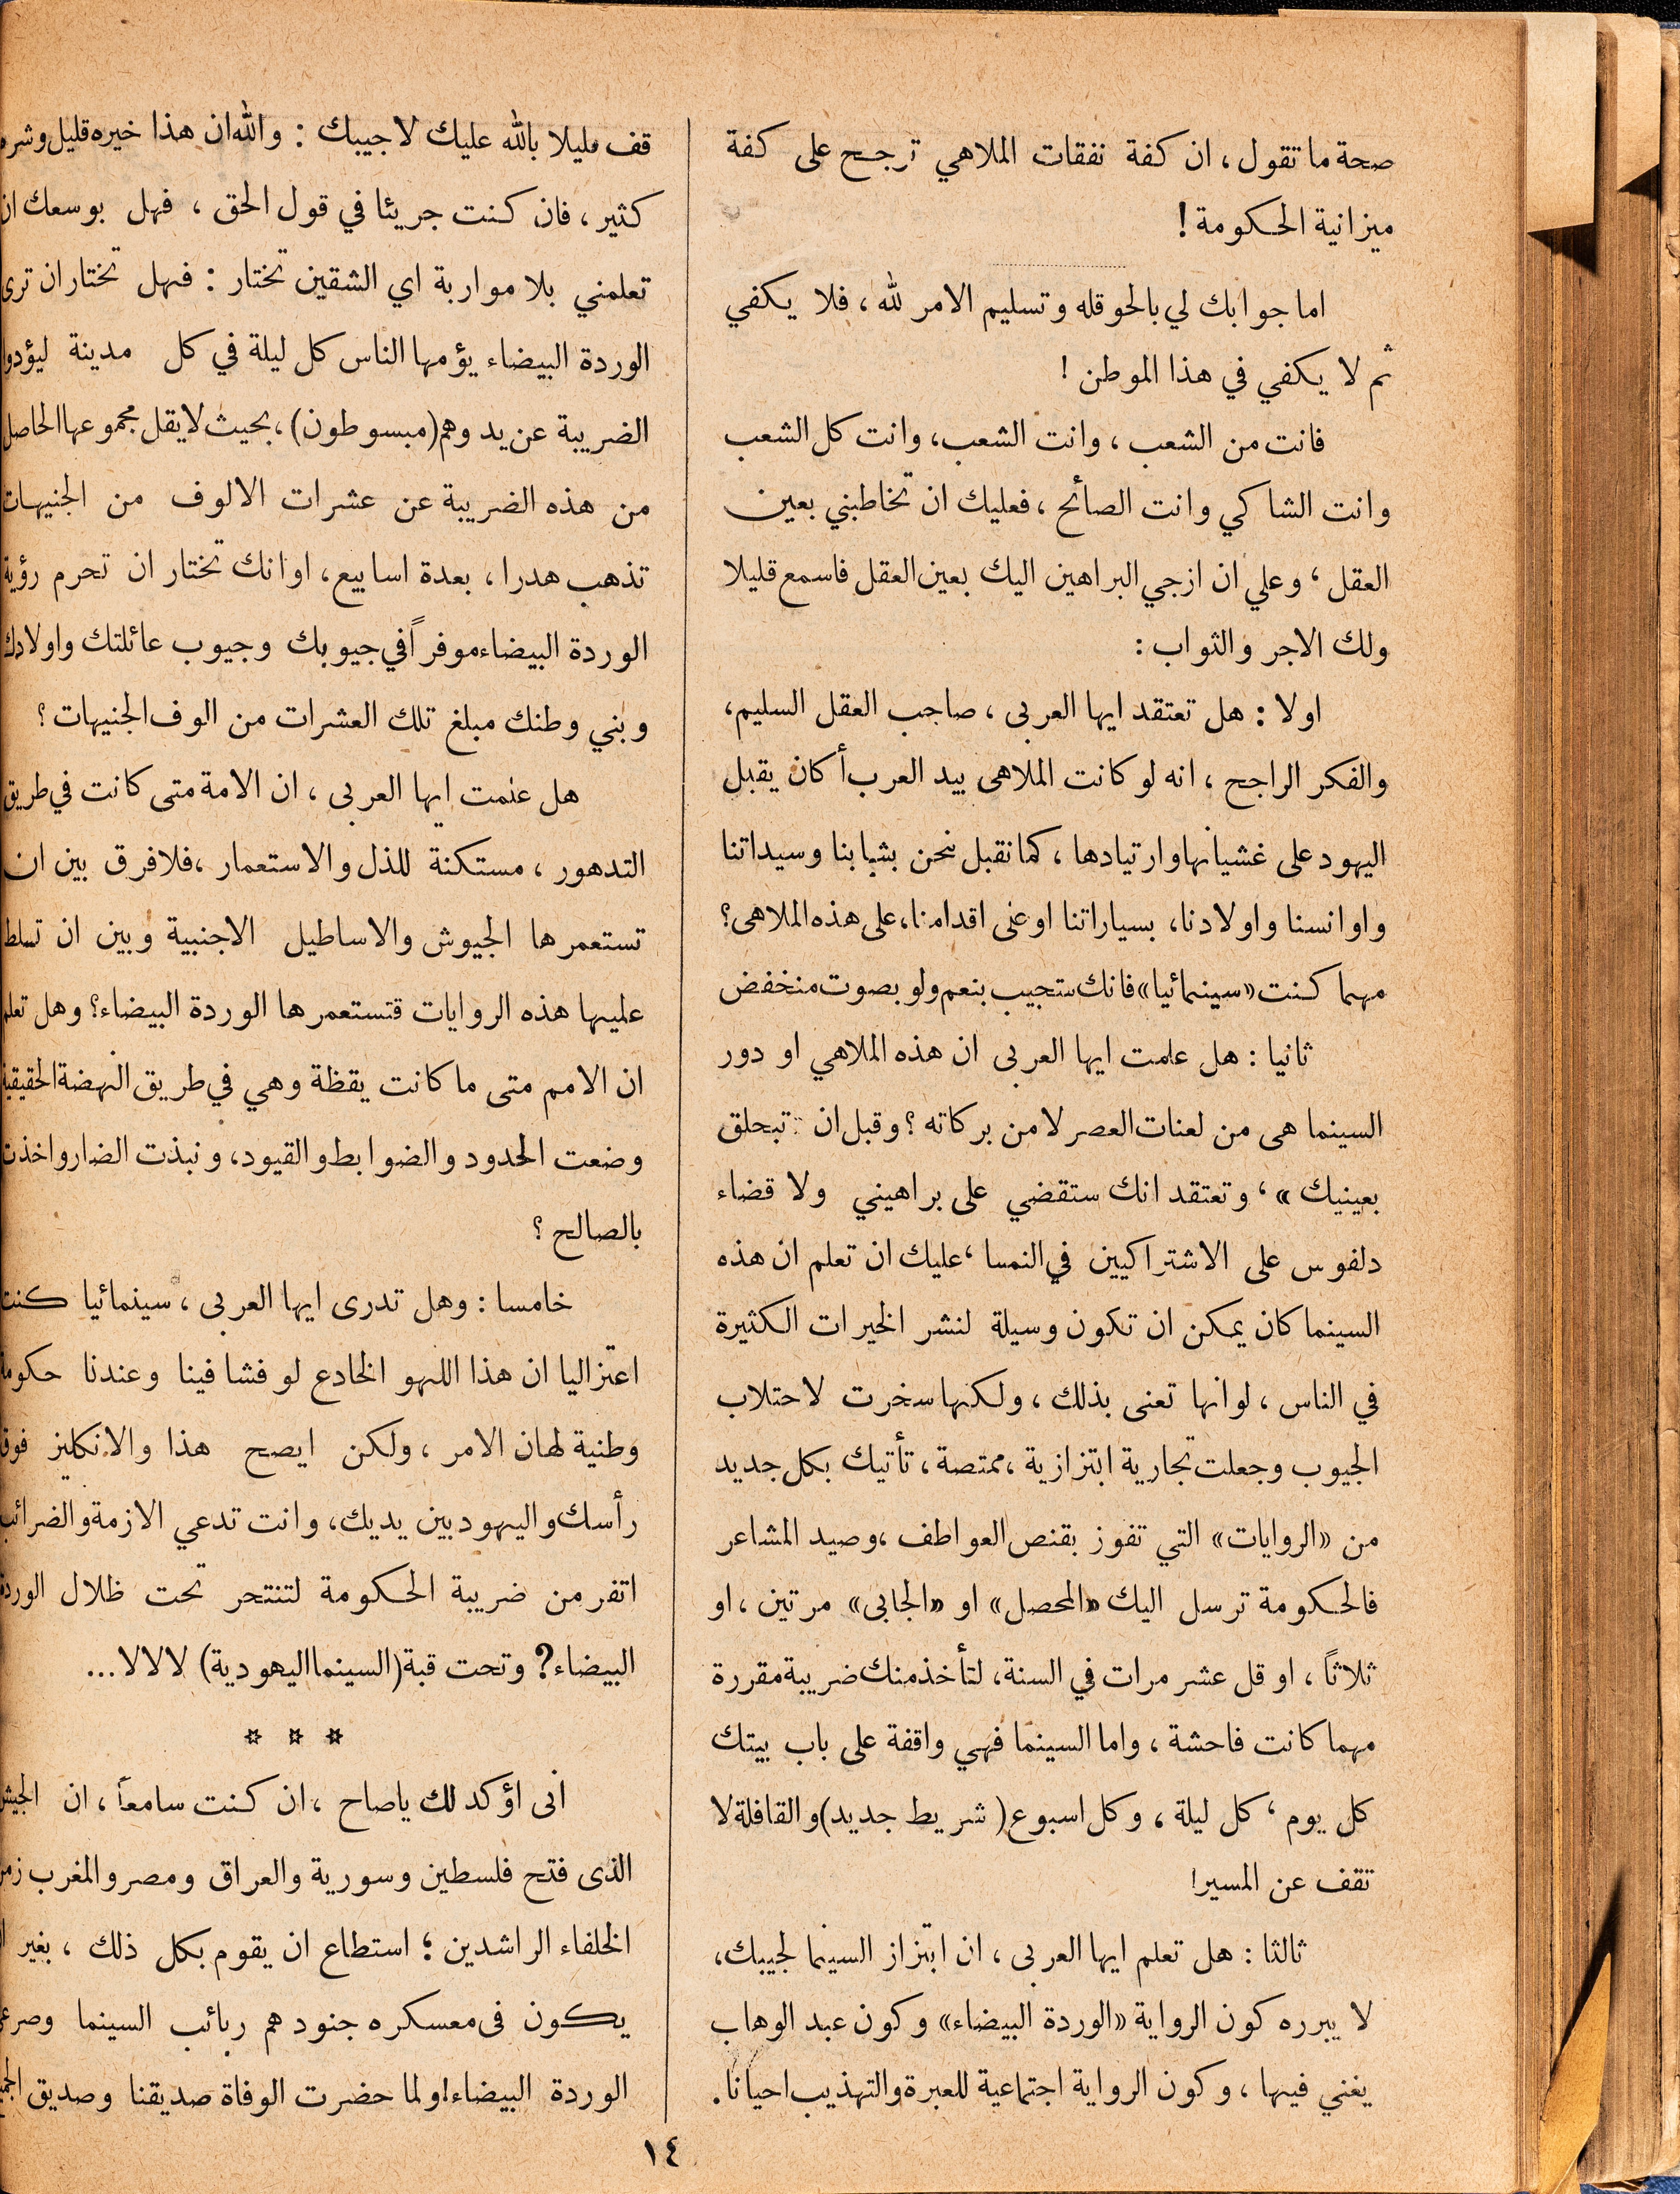 صحة ما تقول ، ان كفة نفقات الملاهي ترجح على كفة
ميزانية الحكومة !
اما جوابك لي بالحوقله وتسليم الامر لله ، فلا يكفي
ثم لا يكفي في هذا الموطن !
فانت من الشعب ، وانت الشعب، وانت كل الشعب
وانت الشاكي وانت الصائح ، فعليك ان تخاطبني بعين
العقل ، وعلي ان ازجي البراهين اليك بعين العقل فاسمع قليلا
ولك الاجر والثواب :
اولا : هل تعتقد ايها العربى ، صاحب العقل السليم،
والفكر الراجح ، انه لو كانت الملاهى بيد العرب أكان يقبل
اليهود على غشيانها وارتيادها ، كما نقبل نحن بشبابنا وسيداتنا
واوانسنا واولادنا، بسياراتنا او على اقدامنا، على هذه الملاهى؟
مهما كنت «سينمائيا» فانك ستجيب بنعم ولو بصوت منخفض
ثانيا : هل علمت ايها العربى ان هذه الملاهي او دور
السينما هى من لعنات العصر لا من بركاته ؟ وقبل ان تبحلق
بعينيك » ، وتعتقد انك ستقضي على براهيني ولا قضاء
دلفوس على الاشتراكيين في النمسا ، عليك ان تعلم ان هذه
السينما كان يمكن ان تكون وسيلة لنشر الخيرات الكثيرة
في الناس ، لو انها تعنى بذلك ، ولكنها سخرت لاحتلاب
الجيوب وجعلت تجارية ابتزازية ، ممتصة ، تأتيك بكل جديد
من «الروايات» التي تفوز بقنص العواطف ، وصيد المشاعر
فالحكومة ترسل اليك «المحصل» او «الجابى» مرتين ، او
ثلاثاً ، او قل عشر مرات في السنة، لتأخذ منك ضريبة مقررة
مهما كانت فاحشة ، واما السينما فهي واقفة على باب بيتك
كل يوم ، كل ليلة ، وكل اسبوع ( شريط جديد) والقافلة لا
تقف عن المسير!
ثالثا : هل تعلم ايها العربى ، ان ابتزاز السينما لجيبك،
لا يبرره كون الرواية «الوردة البيضاء» وكون عبد الوهاب
يغني فيها ، وكون الرواية اجتماعية للعبرة والتهذيب احيانا.
قف مليلا بالله عليك لاجيبك : والله ان هذا خيره قليل وشره
كثير ، فان كنت جريئا في قول الحق ، فهل بوسعك ان
تعلمني بلا مواربة اي الشقين تختار : فهل تختار ان ترى
الوردة البيضاء يؤمها الناس كل ليلة في كل مدينة ليؤدوا
الضريبة عن يد وهم (مبسوطون) ، بحيث لا يقل مجموعها الحاصل
من هذه الضريبة عن عشرات الالوف من الجنيهات
تذهب هدرا ، بعدة اسابيع، او انك تختار ان تحرم رؤية
الوردة البيضاء موفراً في جيوبك وجيوب عائلتك واولادك
وبني وطنك مبلغ تلك العشرات من الوف الجنيهات ؟
هل علمت ايها العربى ، ان الامة متى كانت في طريق
التدهور ، مستكنة للذل والاستعمار ، فلا فرق بين ان
تستعمرها الجيوش والاساطيل الاجنبية وبين ان تسلط
عليها هذه الروايات فتستعمرها الوردة البيضاء؟ وهل تعلم
ان الامم متى ما كانت يقظة وهي في طريق النهضة الحقيقية
وضعت الحدود والضوابط والقيود، ونبذت الضار واخذت
بالصالح ؟
خامسا : وهل تدرى ايها العربى ، سينمائيا كنت
اعتزاليا ان هذا اللهو الخادع لو فشا فينا وعندنا حكومة
وطنية لهان الامر ، ولكن ايصح هذا والانكليز فوق
رأسك واليهود بين يديك، وانت تدعي الازمة والضرائب
اتفر من ضريبة الحكومة لتنتحر تحت ظلال الوردة
البيضاء؟ وتحت قبة (السينما اليهودية) لا لا لا...
* * *
انى اؤكد لك ياصاح ، ان كنت سامعاً ، ان الجيش
الذى فتح فلسطين وسورية والعراق ومصر والمغرب زمن
الخلفاء الراشدين ؛ استطاع ان يقوم بكل ذلك ، بغير
يكون فى معسكره جنود هم ربائب السينما وصرعى
الوردة البيضاء! ولما حضرت الوفاة صديقنا وصديق
١٤